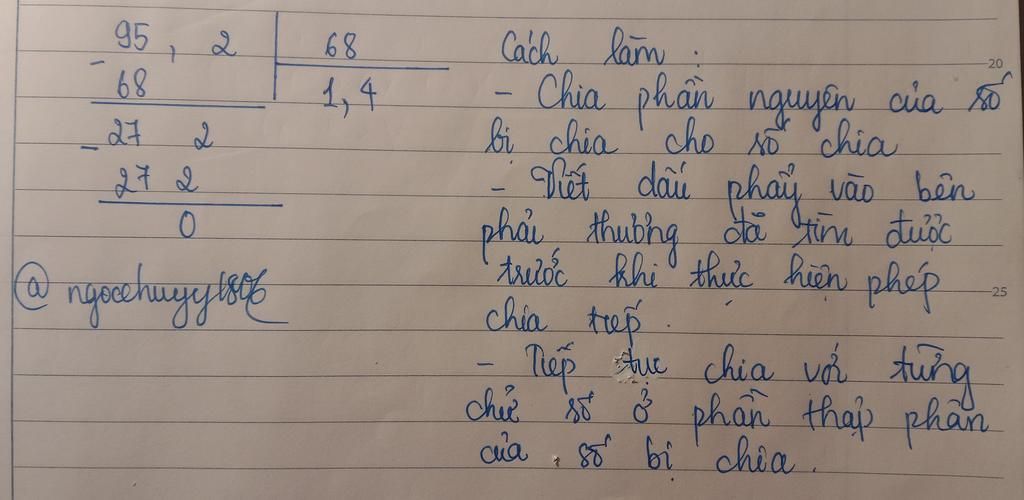 95, 2 68
- 68 1,4
- 27 2
27 2
0
@ ngocehuyy1806
Cách làm :
- Chia phần nguyên của số
bị chia cho số chia
- Viết dấu phẩy vào bên
phải thương đã tìm được
trước khi thực hiện phép
chia tiếp.
- Tiếp tục chia với từng
chữ số ở phần thập phân
của số bị chia.
20
25